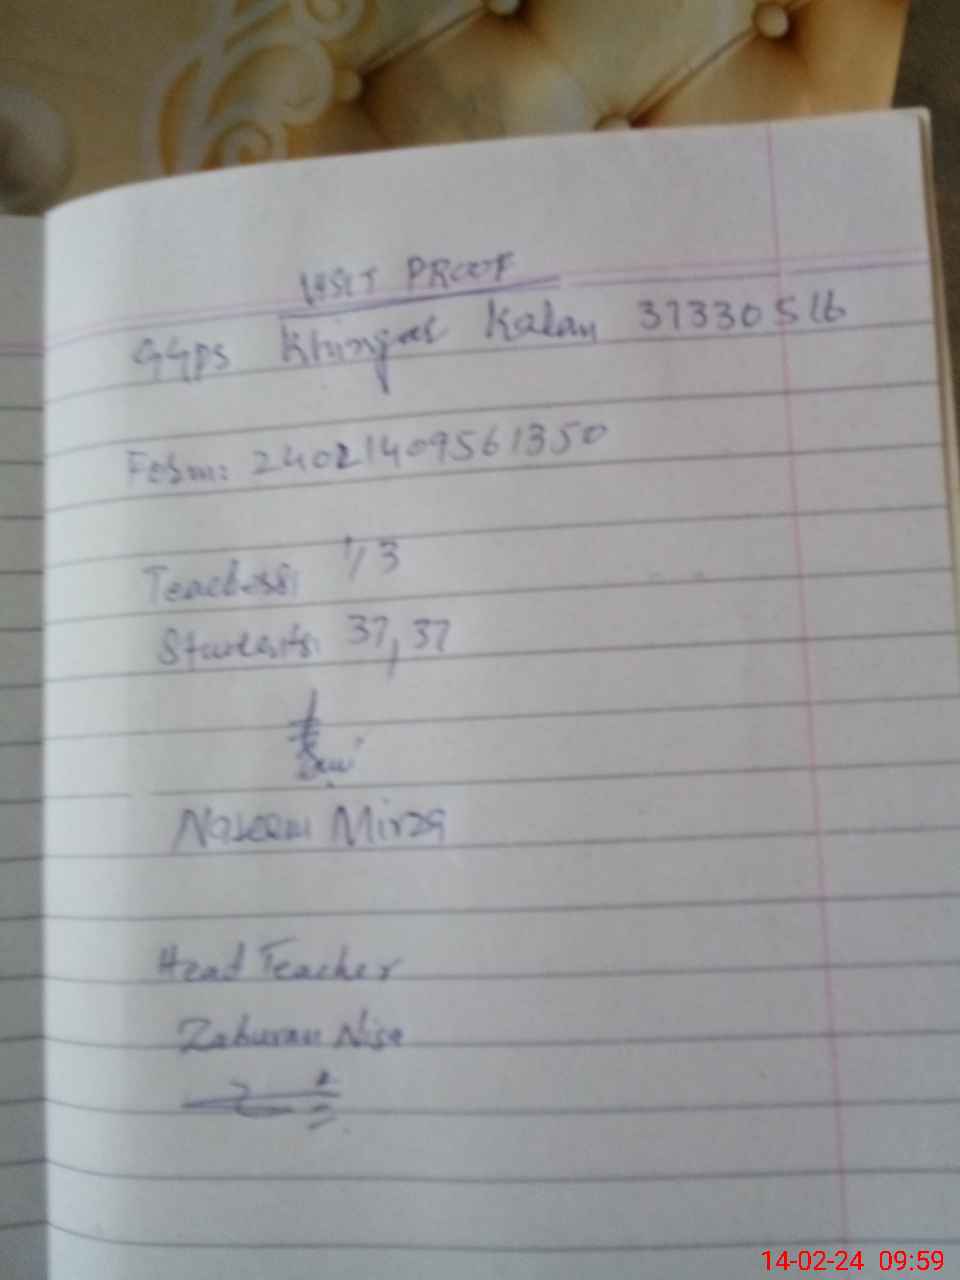 VISIT PROOF
GGPS Khingar Kalan 37330516
Form: 24021409561350
Teachers: 1, 3
Students: 37, 37
Naseem Mirza
Head Teacher
Zahuran Nisa
14-02-24 09:59